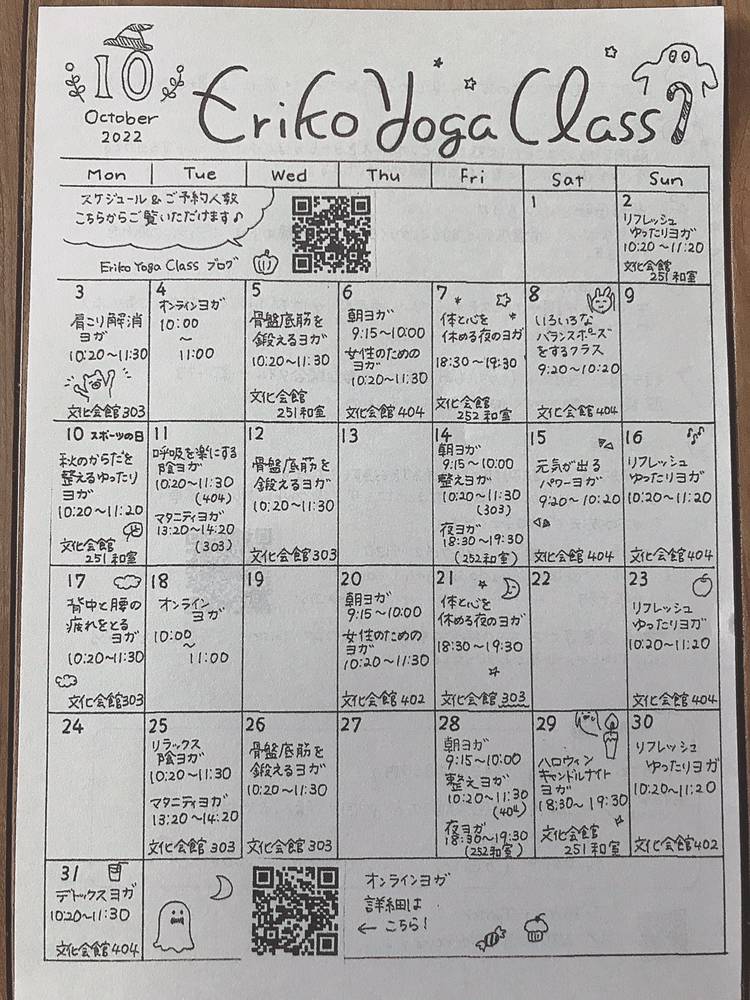 10
October
2022
Eriko Yoga Class
Mon
Tue
Wed
Thu
Fri
Sat
Sun
スケジュール & ご予約人数
こちらからご覧いただけます♪
Eriko Yoga Class ブログ
1
2
リフレッシュ
ゆったりヨガ
10:20〜11:20
文化会館
251和室
3
肩こり解消
ヨガ
10:20〜11:30
文化会館303
4
オンラインヨガ
10:00
〜
11:00
5
骨盤底筋を
鍛えるヨガ
10:20〜11:30
文化会館
251和室
6
朝ヨガ
9:15〜10:00
女性のための
ヨガ
10:20〜11:30
文化会館 404
7
体と心を
休める夜のヨガ
18:30〜19:30
文化会館
252和室
8
いろいろな
バランスポーズ
をするクラス
9:20〜10:20
文化会館404
9
10 スポーツの日
秋のからだを
整えるゆったり
ヨガ
10:20〜11:20
文化会館
251和室
11
呼吸を楽にする
陰ヨガ
10:20〜11:30
(404)
マタニティヨガ
13:20〜14:20
(303)
12
骨盤底筋を
鍛えるヨガ
10:20〜11:30
文化会館303
13
14
朝ヨガ
9:15〜10:00
整えヨガ
10:20〜11:30
(303)
夜ヨガ
18:30〜19:30
(252和室)
15
元気が出る
パワーヨガ
9:20〜10:20
文化会館 404
16
リフレッシュ
ゆったりヨガ
10:20〜11:20
文化会館 404
17
背中と腰の
疲れをとる
ヨガ
10:20〜11:30
文化会館303
18
オンライン
ヨガ
10:00
〜
11:00
19
20
朝ヨガ
9:15〜10:00
女性のための
ヨガ
10:20〜11:30
文化会館 402
21
体と心を
休める夜のヨガ
18:30〜19:30
文化会館 303
22
23
リフレッシュ
ゆったりヨガ
10:20〜11:20
文化会館 404
24
25
リラックス
陰ヨガ
10:20〜11:30
マタニティヨガ
13:20〜14:20
文化会館 303
26
骨盤底筋を
鍛えるヨガ
10:20〜11:30
文化会館 303
27
28
朝ヨガ
9:15〜10:00
整えヨガ
10:20〜11:30
(404)
夜ヨガ
18:30〜19:30
(252和室)
29
ハロウィン
キャンドルナイト
ヨガ
18:30〜19:30
文化会館
251和室
30
リフレッシュ
ゆったりヨガ
10:20〜11:20
文化会館402
31
デトックスヨガ
10:20〜11:30
文化会館404
オンラインヨガ
詳細は
← こちら!